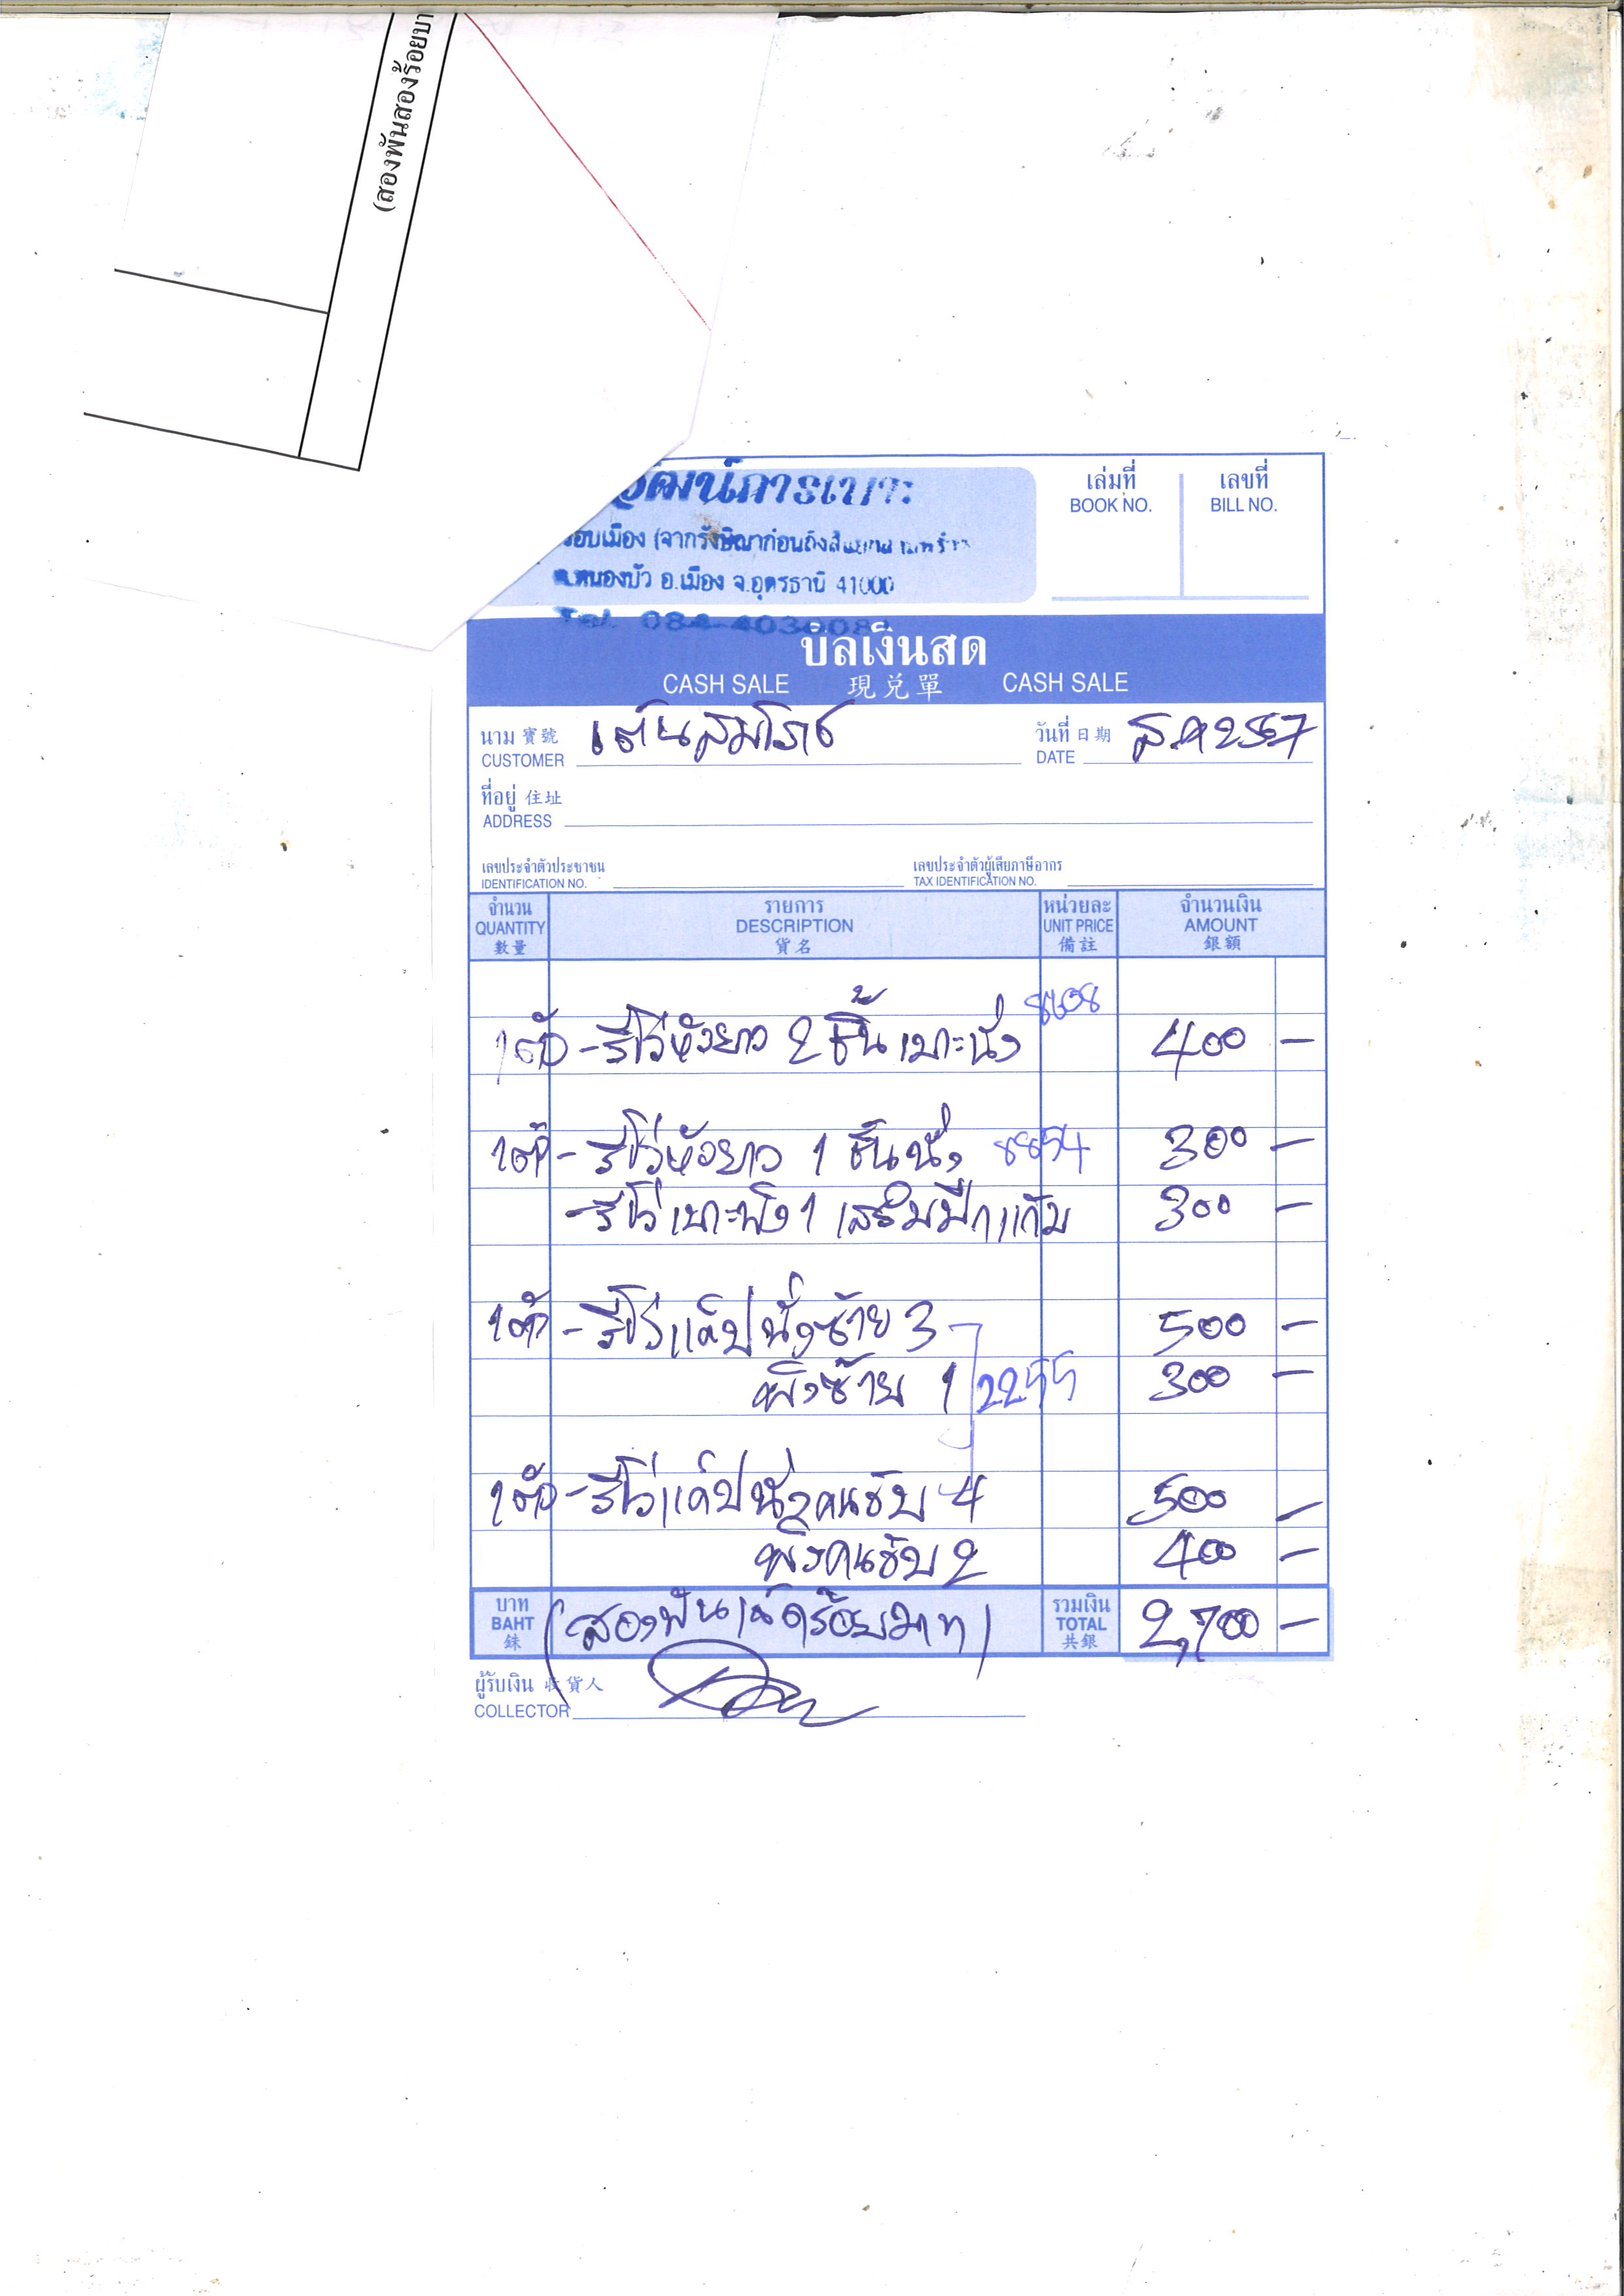 (สองพันสองร้อยบา
วัฒน์การเบาะ
รอบเมือง (จากรังษิณาก่อนถึงสี่แยก
ต.หนองบัว อ.เมือง จ.อุดรธานี 41000
Tel. 084-403
เล่มที่ เลขที่
BOOK NO. BILL NO.
บิลเงินสด
CASH SALE 現兌單 CASH SALE
นาม 寶號 เต็นสมโภช วันที่ 日期 ส.ค 2557
CUSTOMER DATE
ที่อยู่ 住址
ADDRESS
เลขประจำตัวประชาชน เลขประจำตัวผู้เสียภาษีอากร
IDENTIFICATION NO. TAX IDENTIFICATION NO.
จำนวน รายการ หน่วยละ จำนวนเงิน
QUANTITY DESCRIPTION UNIT PRICE AMOUNT
數量 貨名 備註 銀額
1ตัว - รีโว่หัวยาว 2 ชิ้น เบาะนั่ง 400 -
1ตัว - รีโว่หัวยาว 1 ชิ้นนั่ง 8854 300 -
- รีโว่เบาะพิง 1 เสริมปีกแก้ม 300 -
1ตัว - รีโว่แค็ปนั่งซ้าย 3 500 -
พิงซ้าย 1 2255 300 -
1ตัว - รีโว่แค็ปนั่งคนขับ 4 500 -
พิงคนขับ 2 400 -
บาท (สองพันเจ็ดร้อยบาท) รวมเงิน 2,700 -
BAHT TOTAL
銖 共銀
ผู้รับเงิน 收貨人
COLLECTOR